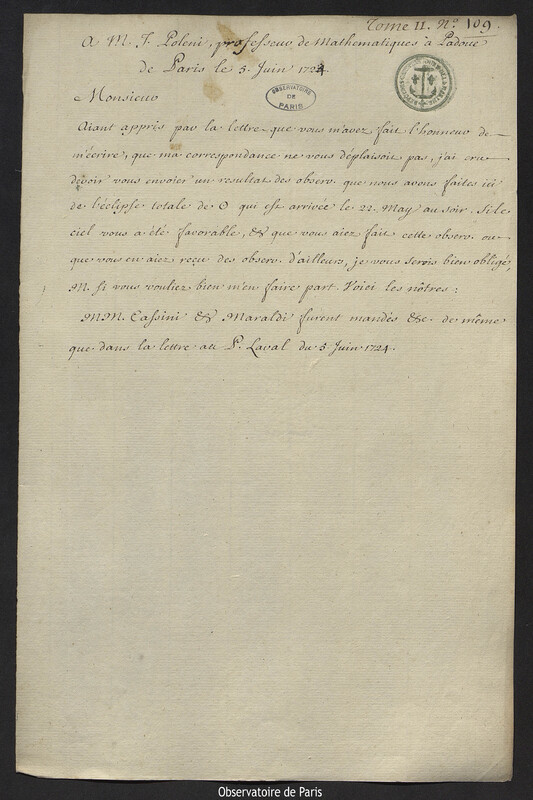 Tome II. N.º 109.
A M. J. Poleni, professeur de Mathematiques à Padoue
de Paris le 5. Juin 1724.
OBSERVATOIRE
DE
PARIS
Monsieur
Aiant appris par la lettre que vous m'avez fait l'honneur de
m'écrire, que ma correspondance ne vous déplaisoit pas, j'ai cru
devoir vous envoier un resultat des observ. que nous avons faites ici
de l'éclipse totale de O qui est arrivée le 22. May au soir. Si le
ciel vous a été favorable, & que vous aiez fait cette observ. ou
que vous en aiez reçu des observ. d'ailleurs, je vous serois bien obligé,
M. si vous vouliez bien m'en faire part. Voici les nôtres :
MM. Cassini & Maraldi furent mandés &c. de même
que dans la lettre au P. Laval du 5 Juin 1724.
Observatoire de Paris